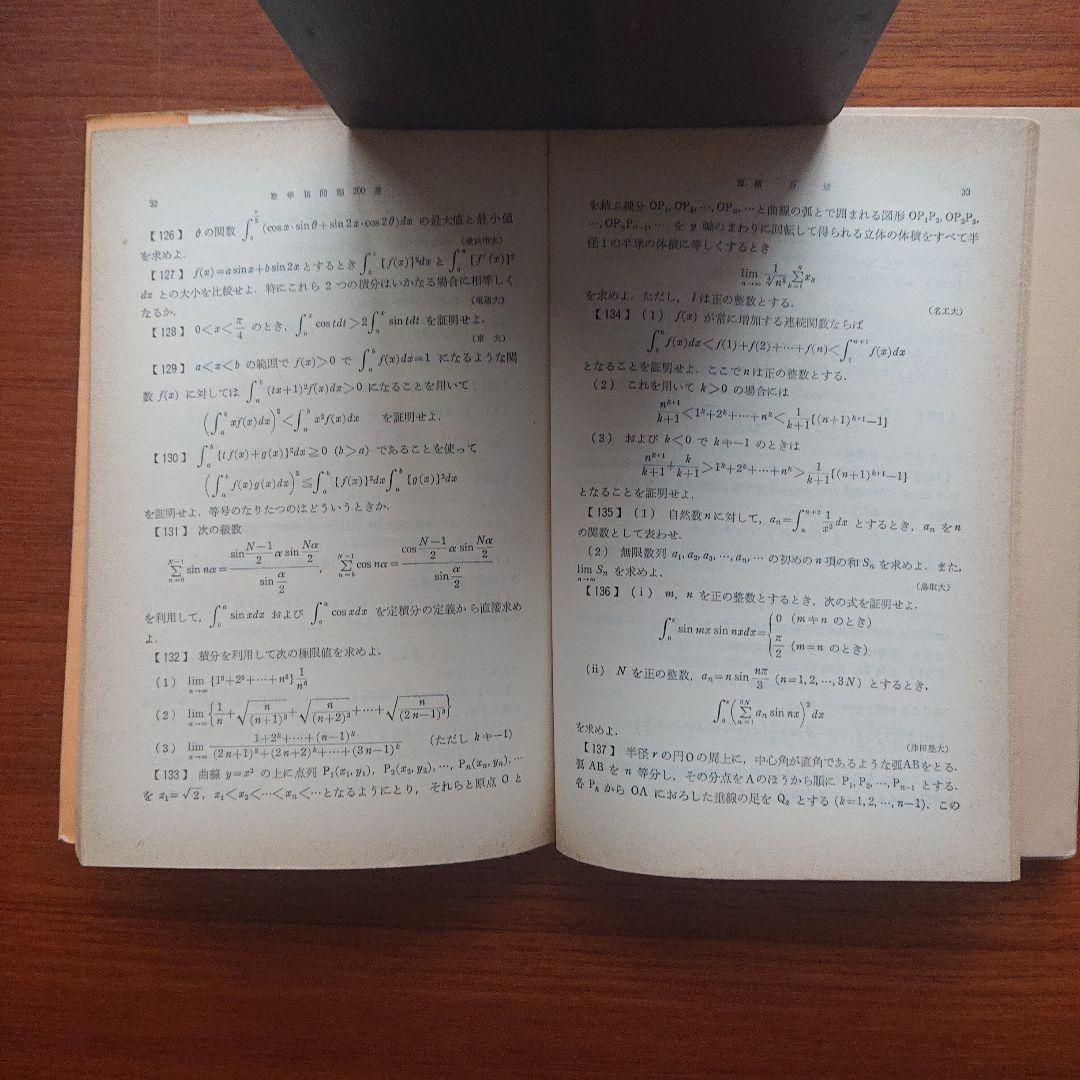 32 数学III問題 200選
【126】 θの関数 ∫₀^{π/2}(cos x·sin θ+sin 2x·cos 2θ)dx の最大値と最小値
を求めよ. (横浜市大)
【127】 f(x)=a sin x+b sin 2x とするとき ∫₀^π{f(x)}²dx と ∫₀^π{f′(x)}²
dx との大小を比較せよ. 特にこれら 2 つの積分はいかなる場合に相等しく
なるか. (電通大)
【128】 0<x<π/4 のとき, ∫₀^x cos t dt>2∫₀^x sin t dt を証明せよ.
(東 大)
【129】 a<x<b の範囲で f(x)>0 で ∫ₐ^b f(x)dx=1 になるような関
数 f(x) に対しては ∫ₐ^b (tx+1)²f(x)dx>0 になることを用いて
(∫ₐ^b xf(x)dx)²<∫ₐ^b x²f(x)dx を証明せよ.
【130】 ∫ₐ^b{tf(x)+g(x)}²dx≧0 (b>a) であることを使って
(∫ₐ^b f(x)g(x)dx)²≦∫ₐ^b{f(x)}²dx∫ₐ^b{g(x)}²dx
を証明せよ. 等号のなりたつのはどういうときか.
【131】 次の級数
Σ_{n=0}^{N-1} sin nα=(sin (N-1)/2 α sin Nα/2)/(sin α/2), Σ_{n=0}^{N-1} cos nα=(cos (N-1)/2 α sin Nα/2)/(sin α/2)
を利用して, ∫₀^a sin xdx および ∫₀^a cos xdx を定積分の定義から直接求め
よ.
【132】 積分を利用して次の極限値を求めよ.
(1) lim_{n→∞}
(2) lim_{n→∞}{1/n+√(n/(n+1)³)+√(n/(n+2)³)+…+√(n/(2n−1)³)}
(3) lim_{n→∞} (1+2^k+…+(n−1)^k)/((2n+1)^k+(2n+2)^k+…+(3n−1)^k) (ただし k≠−1)
【133】 曲線 y=x² の上に点列 P₁(x₁, y₁), P₂(x₂, y₂), …, Pₙ(xₙ, yₙ), …
を x₁=√2, x₁<x₂<…<xₙ<… となるようにとり, それらと原点 O と
積 分 法 33
を結ぶ線分 OP₁, OP₂, …, OPₙ, … と曲線の弧とで囲まれる図形 OP₁P₂, OP₂P₃,
…, OPₙPₙ₊₁, … を y 軸のまわりに回転して得られる立体の体積をすべて半
径 1 の半球の体積に等しくするとき
lim_{n→∞} Σ_{k=1}^n x_k
を求めよ. ただし, l は正の整数とする. (名工大)
【134】 (1) f(x) が常に増加する連続関数ならば
∫₀^n f(x)dx<f(1)+f(2)+…+f(n)<∫₁^{n+1} f(x)dx
となることを証明せよ. ここで n は正の整数とする.
(2) これを用いて k>0 の場合には
n^{k+1}/(k+1)<1^k+2^k+…+n^k<1/(k+1){(n+1)^{k+1}−1}
(3) および k<0 で k≠−1 のときは
n^{k+1}/(k+1)+k/(k+1)>1^k+2^k+…+n^k>1/(k+1){(n+1)^{k+1}−1}
となることを証明せよ.
【135】 (1) 自然数 n に対して, aₙ=∫ₙ^{n+2} 1/x² dx とするとき, aₙ を n
の関数として表わせ.
(2) 無限数列 a₁, a₂, a₃, …, aₙ, … の初めの n 項の和 Sₙ を求めよ. また,
lim_{n→∞} Sₙ を求めよ. (鳥取大)
【136】 (i) m, n を正の整数とするとき, 次の式を証明せよ.
∫₀^π sin mx sin nxdx={0 (m≠n のとき)
π/2 (m=n のとき)
(ii) N を正の整数, aₙ=n sin nπ/3 (n=1, 2, …, 3N) とするとき,
∫₀^π(Σ_{n=1}^{3N} aₙ sin nx)²dx
を求めよ. (津田塾大)
【137】 半径 r の円 O の周上に, 中心角が直角であるような弧ABをとる.
弧 AB を n 等分し, その分点をAのほうから順に P₁, P₂, …, Pₙ₋₁ とする.
各 P_k から OA におろした垂線の足を Q_k とする (k=1, 2, …, n−1). この